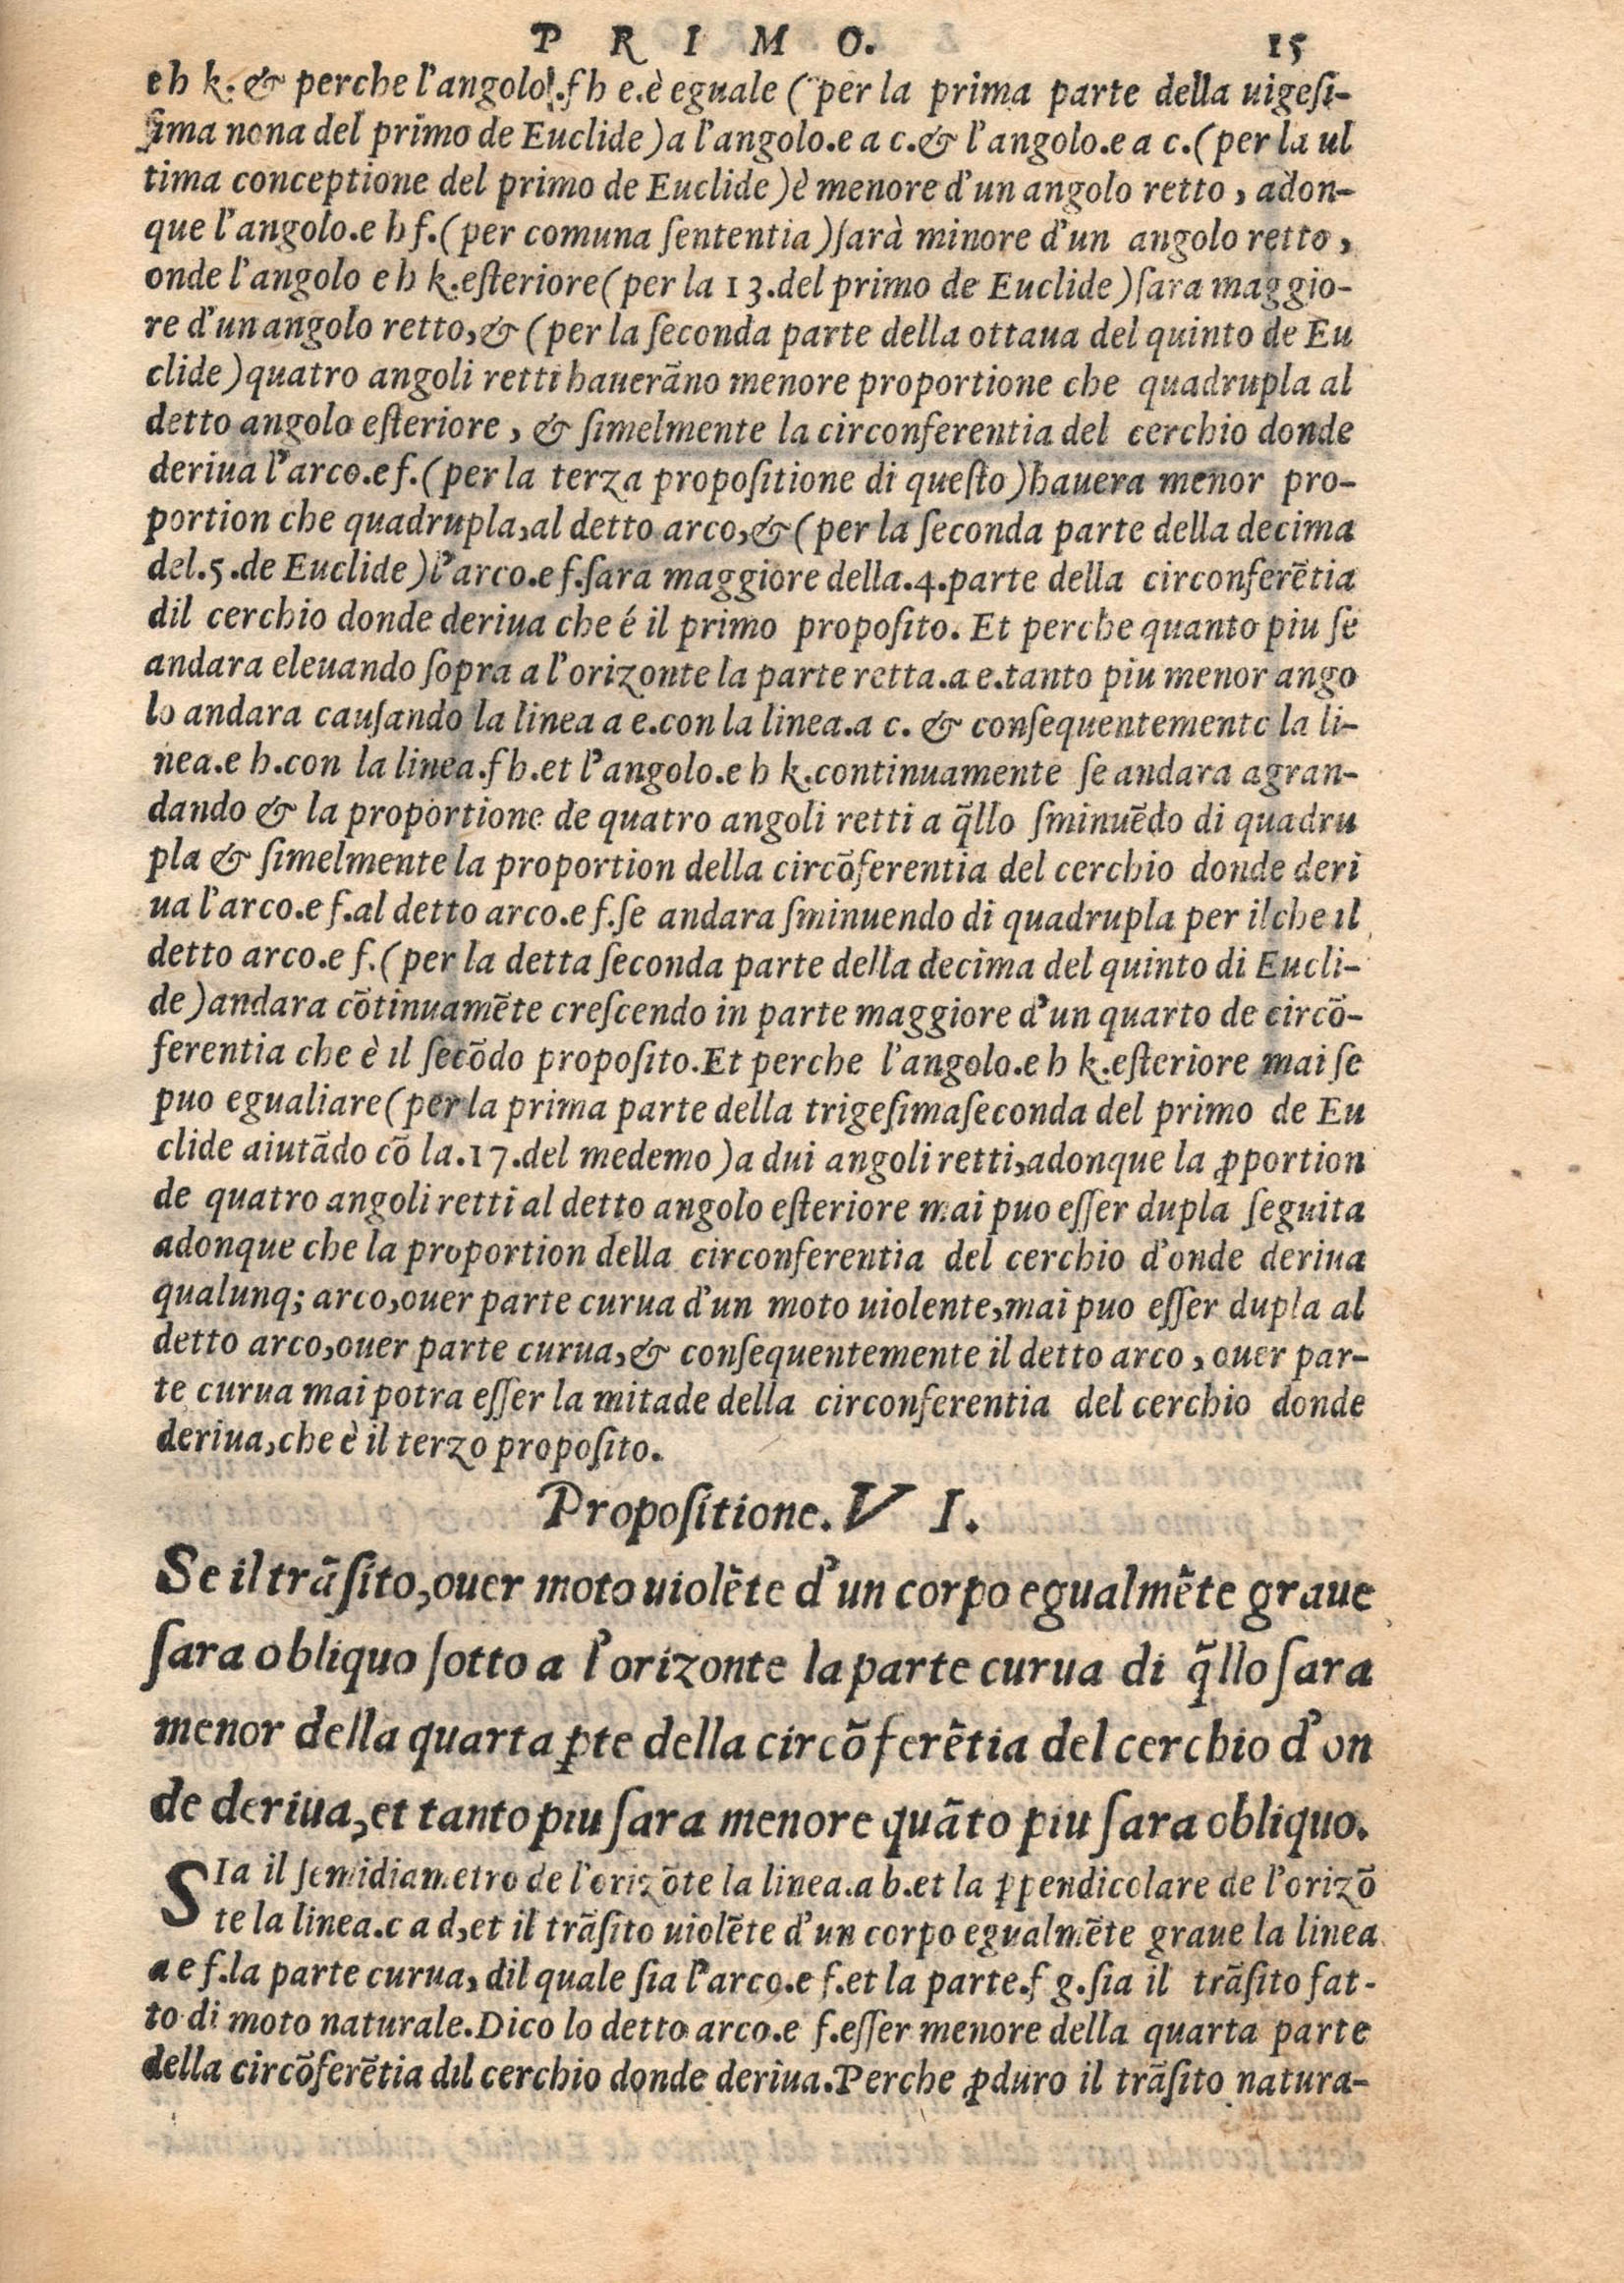 P R I M O. 15
e h k. & perche l'angolo.f h e.è eguale (per la prima parte della uigesi-
sima nona del primo de Euclide) a l'angolo.e a c.& l'angolo.e a c.(per la ul
tima conceptione del primo de Euclide) è menore d'un angolo retto, adon-
que l'angolo.e h f.(per comuna sententia) sarà minore d'un angolo retto,
onde l'angolo e h k.esteriore (per la 13.del primo de Euclide) sara maggio-
re d'un angolo retto,& (per la seconda parte della ottaua del quinto de Eu
clide) quatro angoli retti haueràno menore proportione che quadrupla al
detto angolo esteriore, & simelmente la circonferentia del cerchio donde
deriua l'arco.e f.(per la terza propositione di questo) hauera menor pro-
portion che quadrupla,al detto arco,& (per la seconda parte della decima
del.5.de Euclide) l'arco.e f.sara maggiore della.4.parte della circonferẽtia
dil cerchio donde deriua che é il primo proposito. Et perche quanto piu se
andara eleuando sopra a l'orizonte la parte retta.a e.tanto piu menor ango
lo andara causando la linea a e.con la linea.a c. & consequentemente la li-
nea.e h.con la linea.f h.et l'angolo.e h k.continuamente se andara agran-
dando & la proportione de quatro angoli retti a q̃llo sminuẽdo di quadru
pla & simelmente la proportion della circõferentia del cerchio donde deri
ua l'arco.e f.al detto arco.e f.se andara sminuendo di quadrupla per ilche il
detto arco.e f.(per la detta seconda parte della decima del quinto di Eucli-
de) andara cõtinuamẽte crescendo in parte maggiore d'un quarto de circõ-
ferentia che è il secõdo proposito.Et perche l'angolo.e h k.esteriore mai se
puo egualiare (per la prima parte della trigesimaseconda del primo de Eu
clide aiutãdo cõ la.17.del medemo) a dui angoli retti,adonque la ꝓportion
de quatro angoli retti al detto angolo esteriore mai puo esser dupla seguita
adonque che la proportion della circonferentia del cerchio d'onde deriua
qualunq; arco,ouer parte curua d'un moto uiolente,mai puo esser dupla al
detto arco,ouer parte curua,& consequentemente il detto arco, ouer par-
te curua mai potra esser la mitade della circonferentia del cerchio donde
deriua,che è il terzo proposito.
Propositione. V I.
Se il trãsito,ouer moto uiolẽte d'un corpo egualmẽte graue
sara obliquo sotto a l'orizonte la parte curua di q̃llo sara
menor della quarta ꝑte della circõferẽtia del cerchio d'on
de deriua,et tanto piu sara menore quãto piu sara obliquo.
SIa il semidiametro de l'orizõte la linea.a b.et la ꝑpendicolare de l'orizõ
te la linea.c a d,et il trãsito uiolẽte d'un corpo egualmẽte graue la linea
a e f.la parte curua, dil quale sia l'arco.e f.et la parte.f g.sia il trãsito fat-
to di moto naturale.Dico lo detto arco.e f.esser menore della quarta parte
della circõferẽtia dil cerchio donde deriua.Perche ꝓduro il trãsito natura-